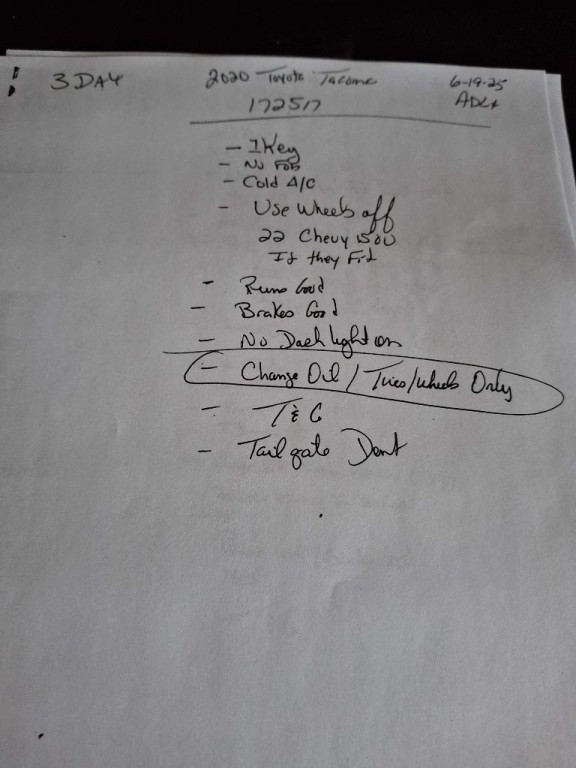 3 DAY
2020 Toyota Tacoma
6-19-25
172517
- 1 Key
- No FOB
- Cold A/C
- Use Wheels off
22 Chevy 1500
If they Fit
- Runs Good
- Brakes Good
- No Dash light on
- Change Oil / Tires/wheels Only
- T & G
- Tailgate Dent